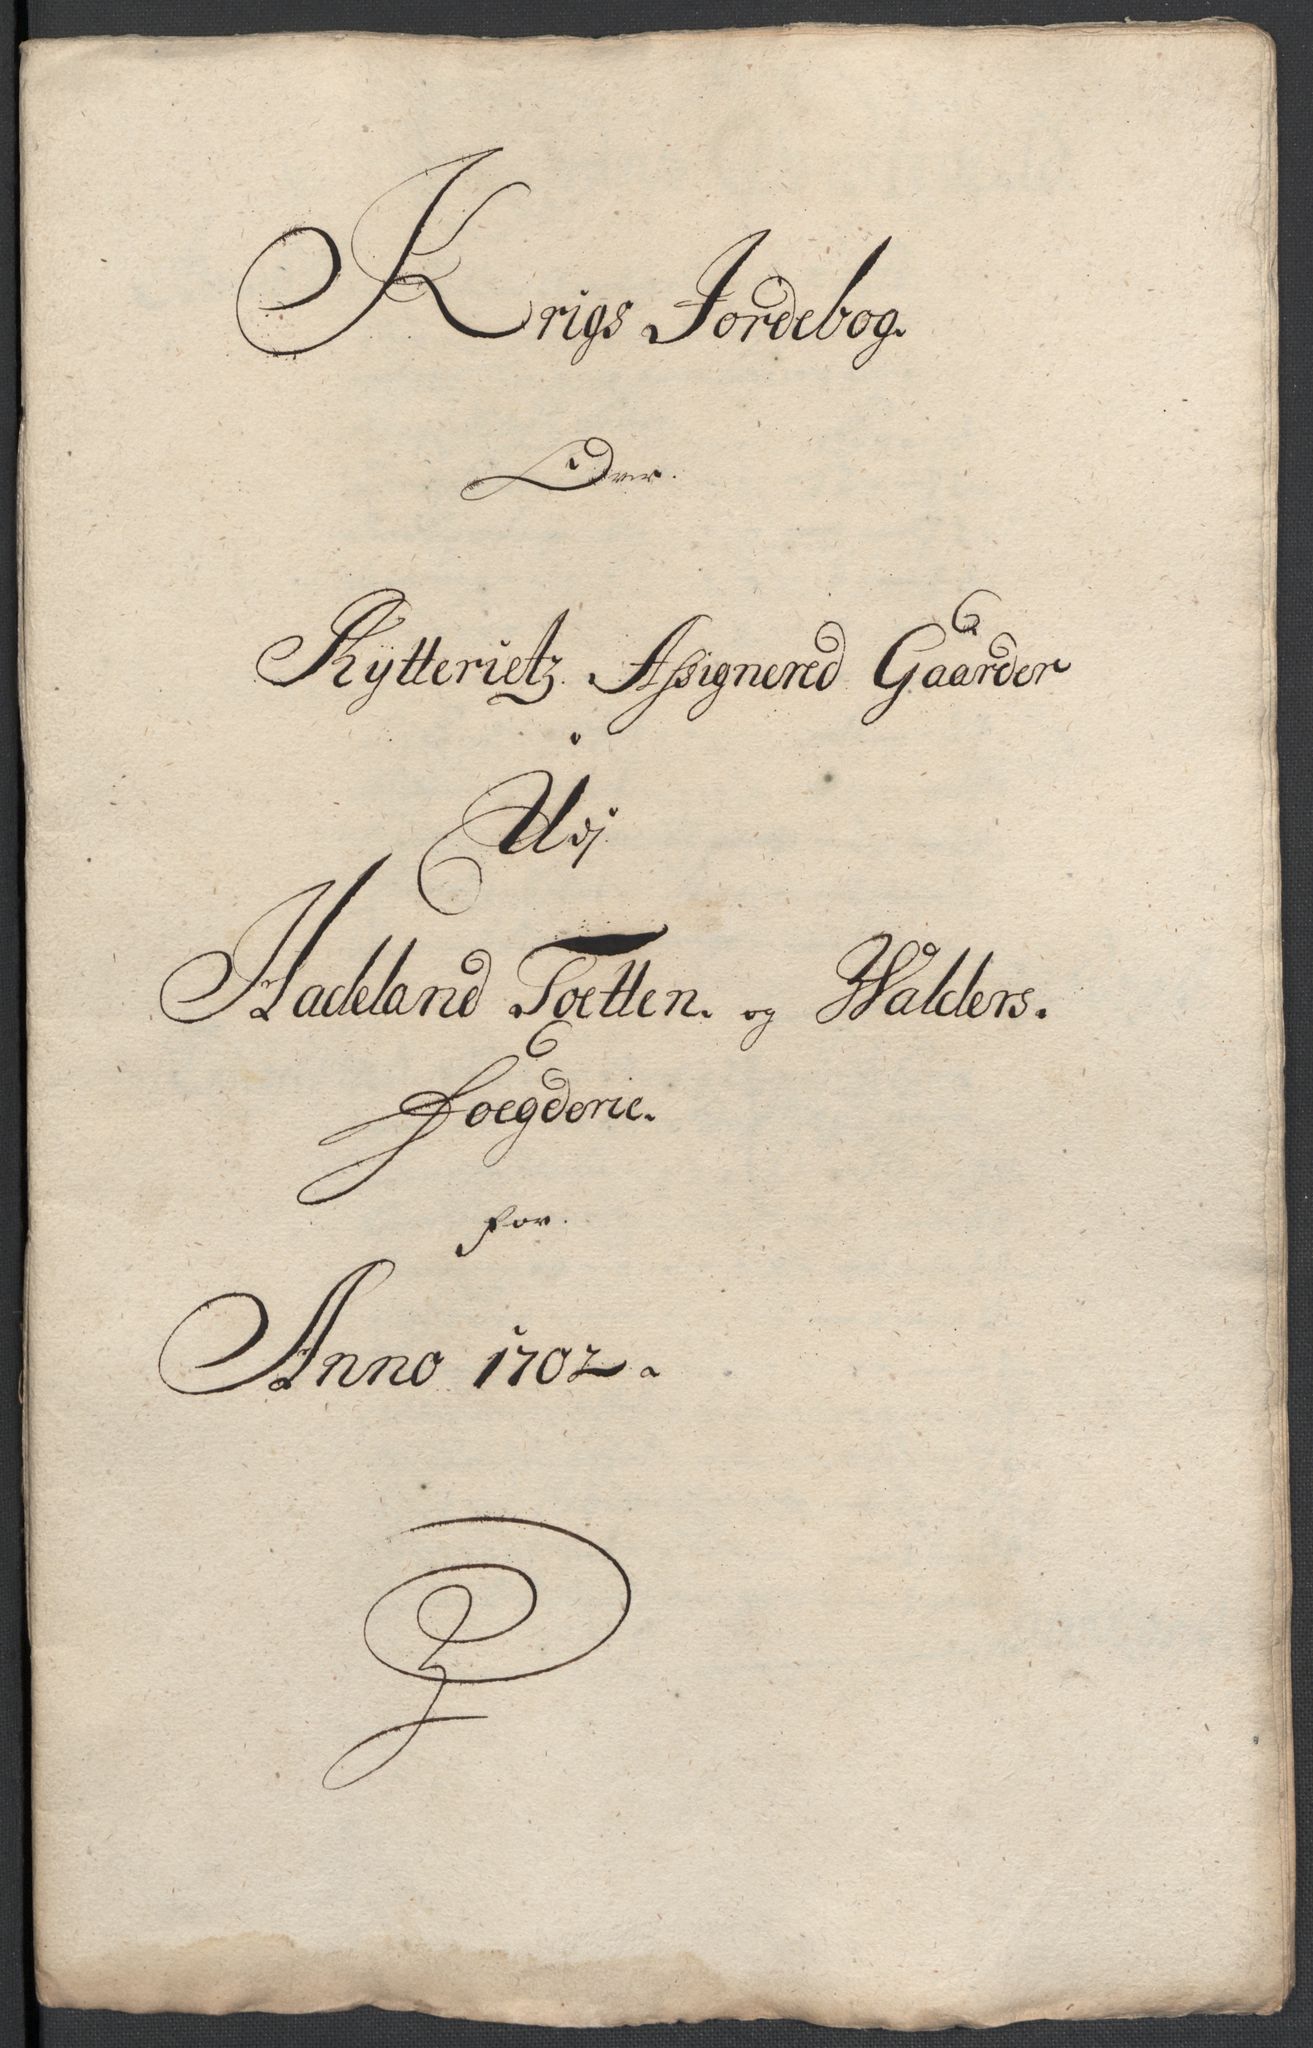 Krigs Jordebog.
Over.
Rÿtterietz Assignered Gaarder
Udj
Hadeland Toetten. og Walders.
Foegderie.
for.
Anno 1702.